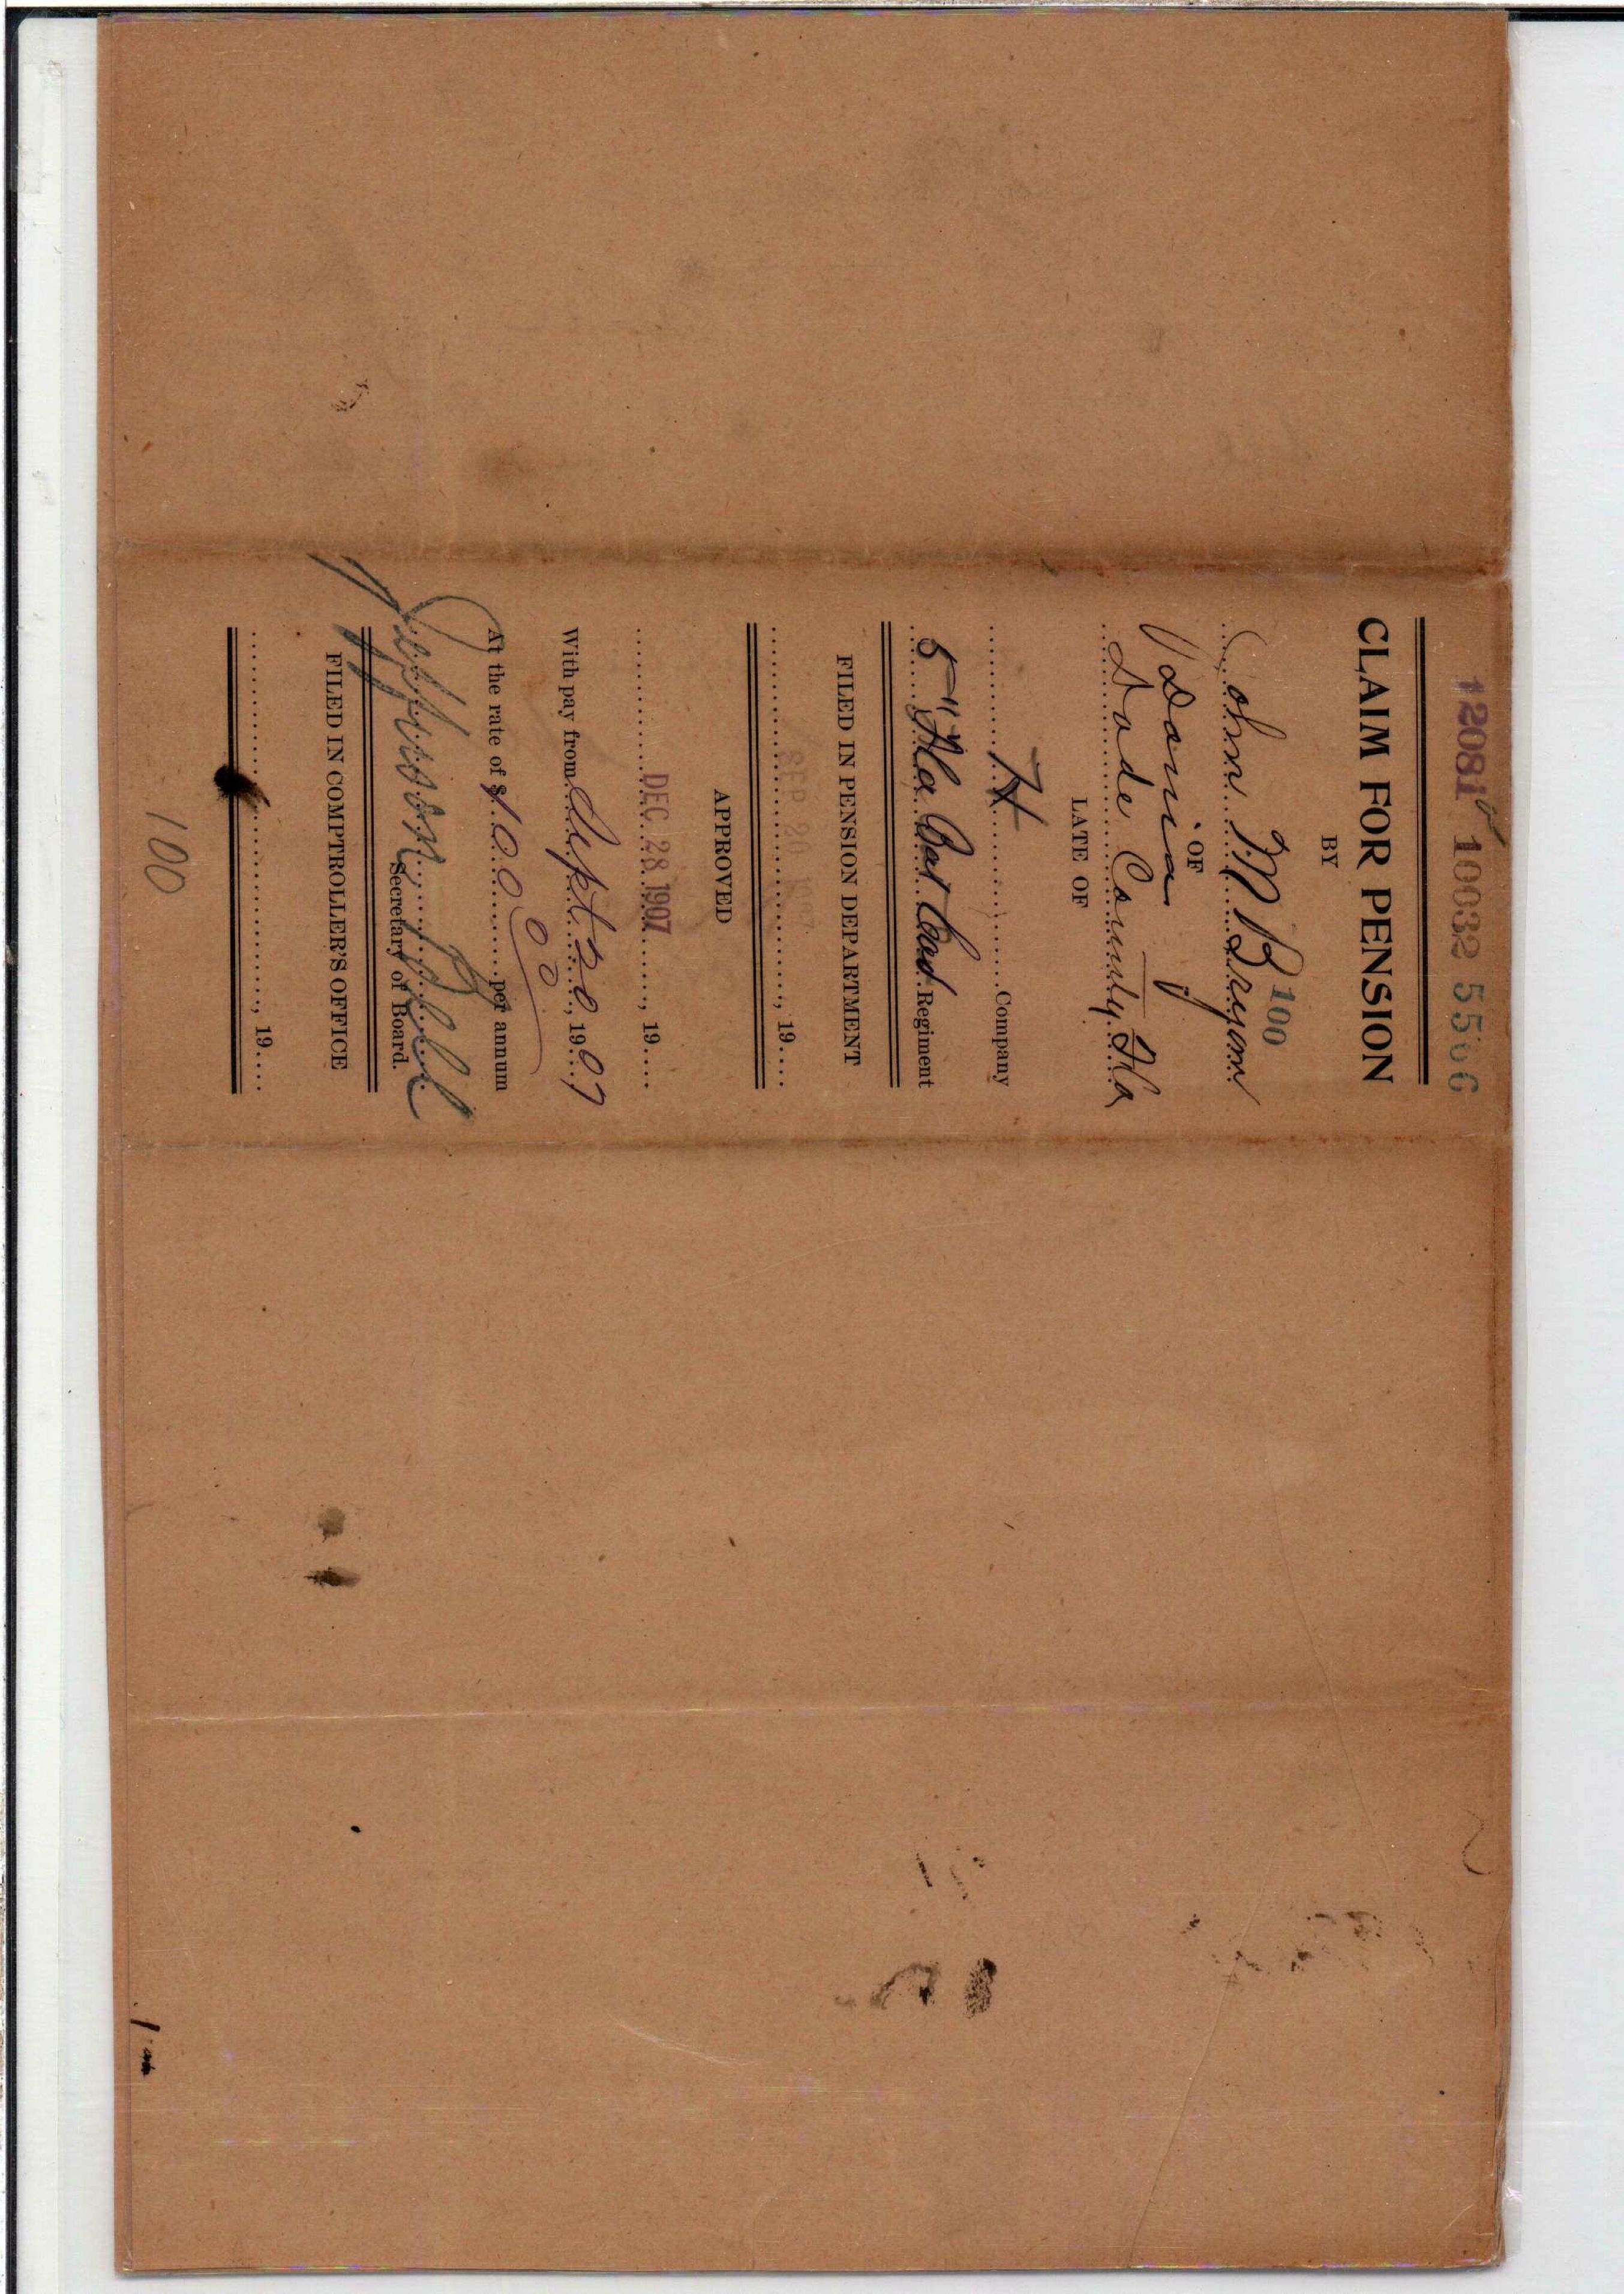 12081 10032 5566
CLAIM FOR PENSION
BY
100
John M Bryan
OF
Dania
Dade County Fla
LATE OF
H Company
5" Fla Bat Cav Regiment
FILED IN PENSION DEPARTMENT
SEP 20 1907
, 19....
APPROVED
DEC 28 1907, 19....
With pay from Sept 20, 1907
At the rate of $100 00 per annum
Jefferson B
Secretary of Board.
FILED IN COMPTROLLER'S OFFICE
, 19....
100